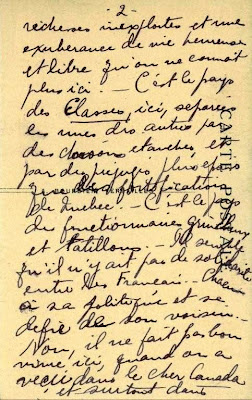 - 2 -
richesses inexploitées et une
exubérance de vie heureuse
et libre qu'on ne connaît
plus ici. — C'est le pays
des Classes, ici, séparées
les unes des autres par
des cloisons étanches et
par des préjugés plus épais
que les fortifications
de Québec. — C'est le pays
de fonctionnaires
et tatillons. — Il semble
qu'il n'y ait pas de solidarité
entre les Français — Chacun
a sa politique et se
défie de son voisin. —
Non, il ne fait pas bon
vivre ici, quand on a
vécu dans le cher Canada
et surtout dans
CARTE POST